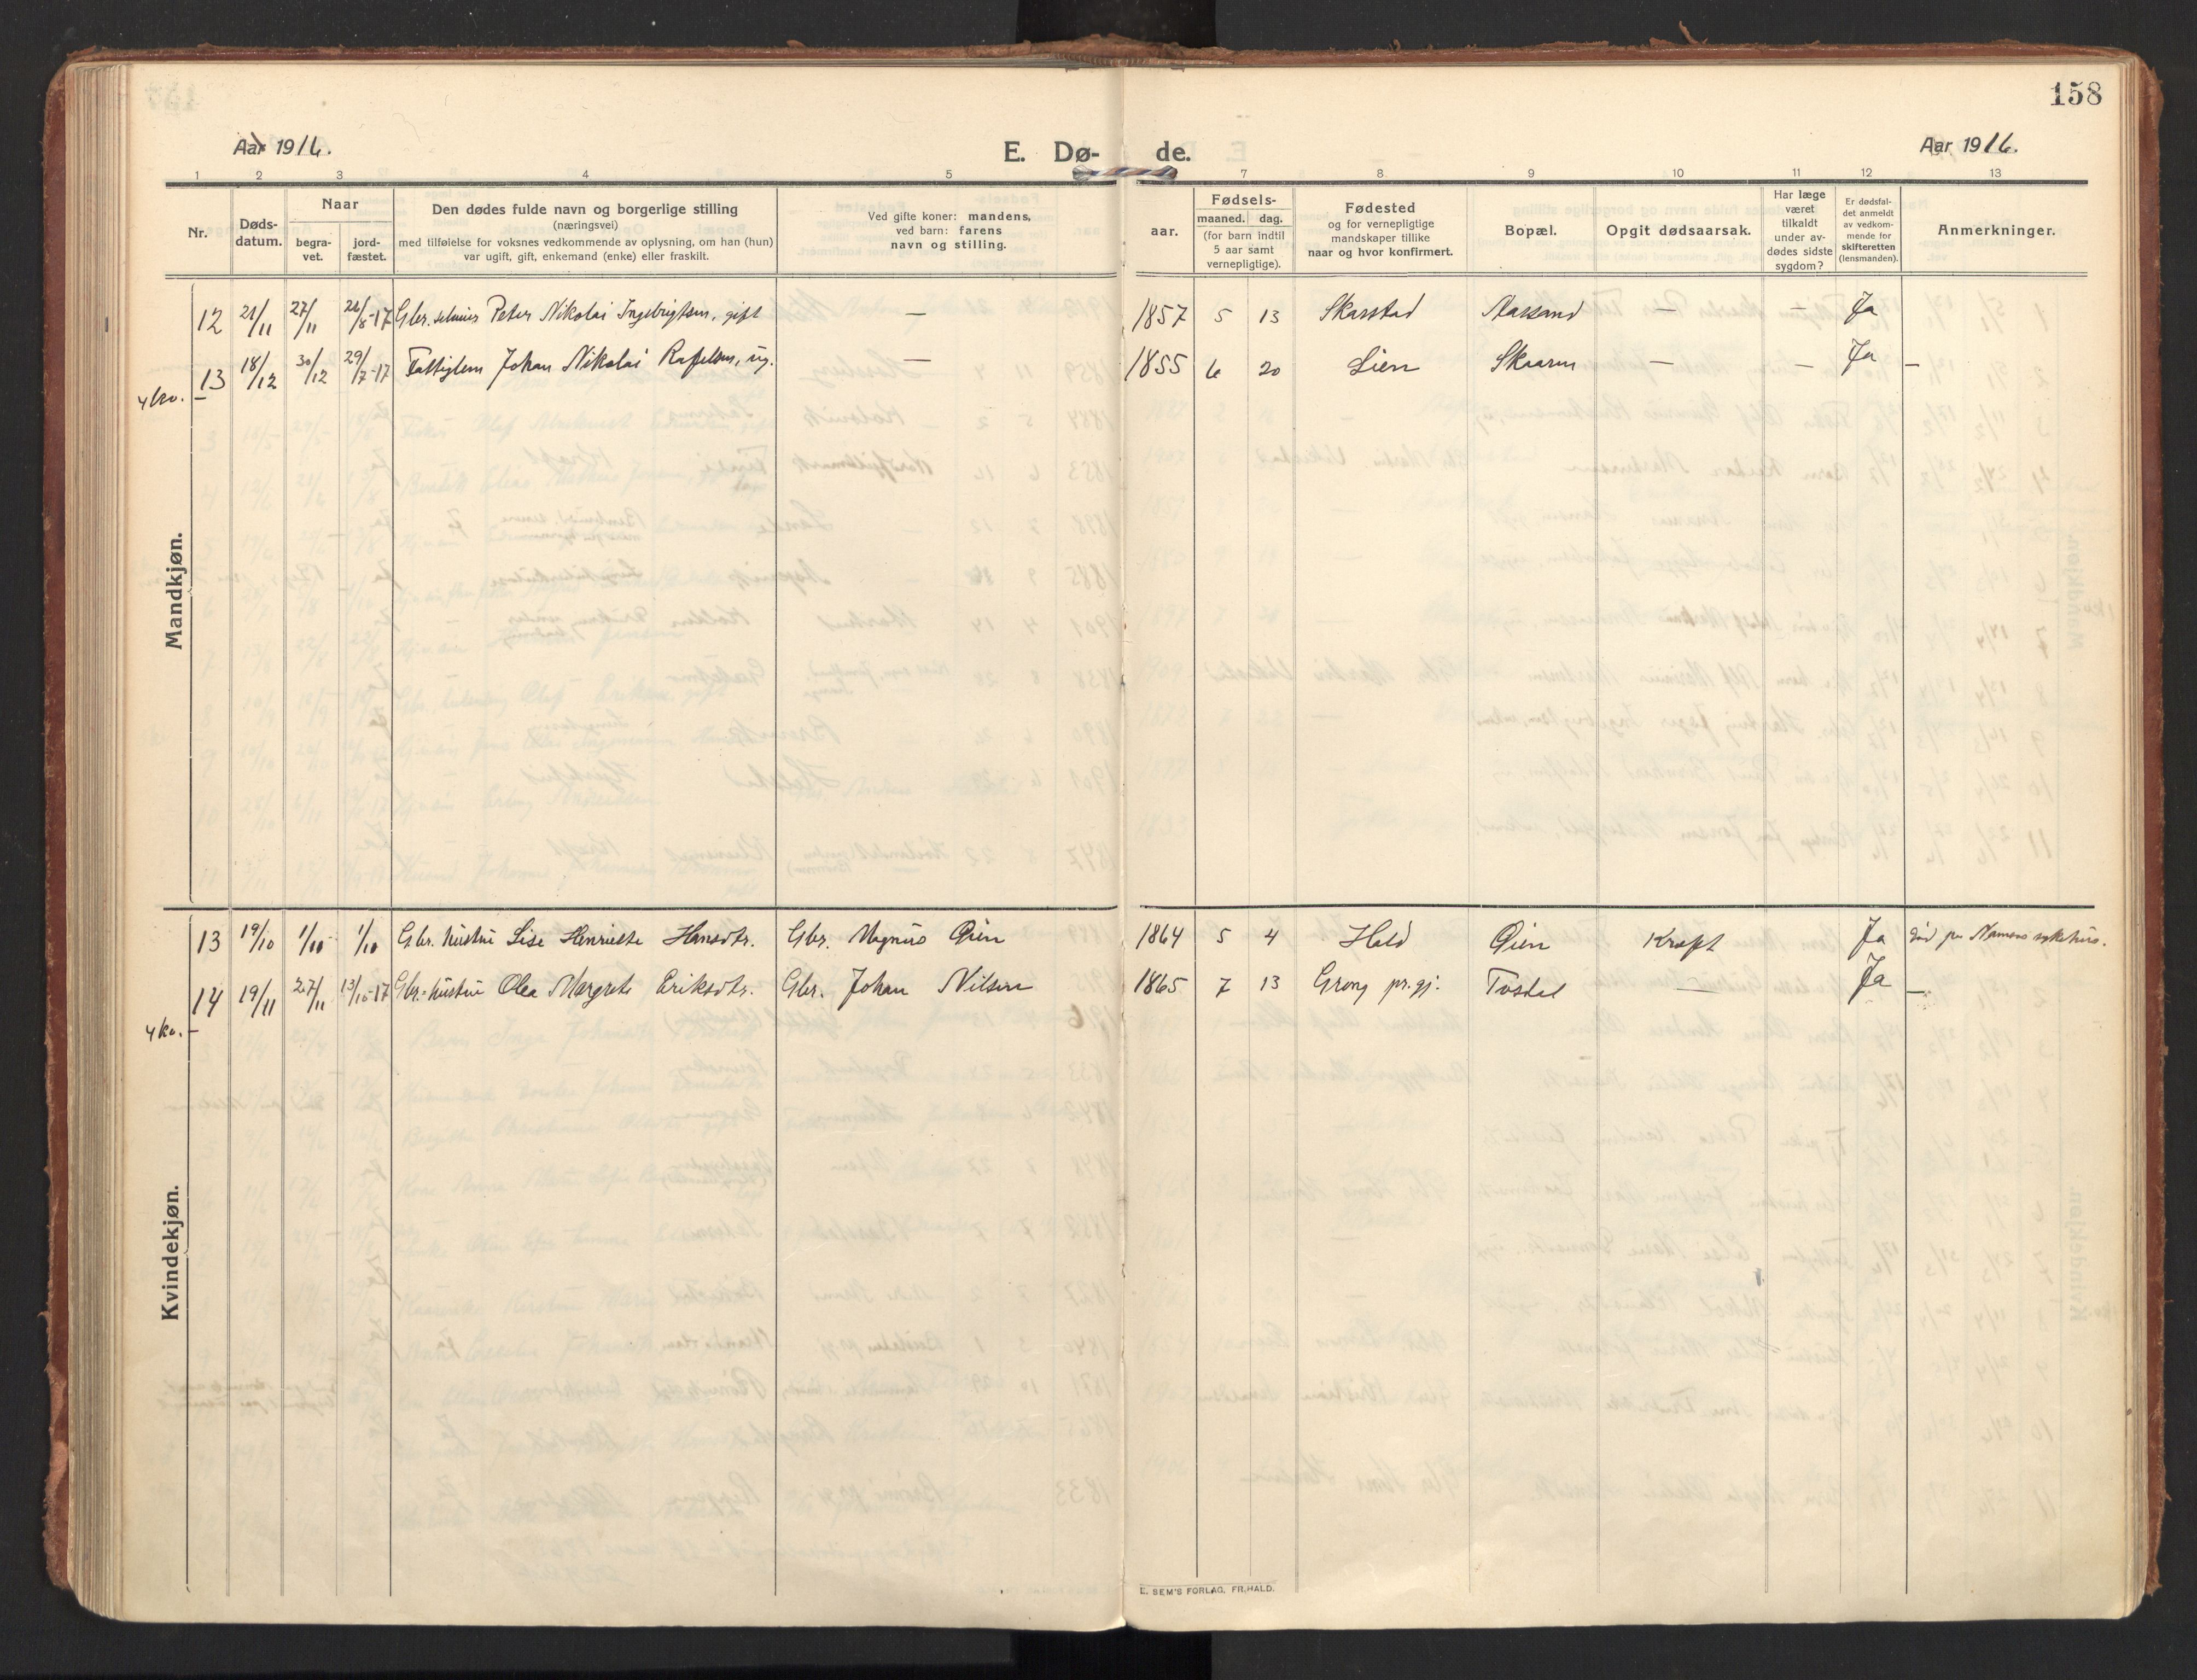 158
Aar 1916.
E. Dø- de.
Aar 1916.
1 2 3 4 5 7 8 9 10 11 12 13
Nr.
Døds-
datum.
Naar
begra-
vet.
jord-
fæstet.
Den dødes fulde navn og borgerlige stilling
(næringsvei)
med tilføielse for voksnes vedkommende av oplysning, om han (hun)
var ugift, gift, enkemand (enke) eller fraskilt.
Ved gifte koner: mandens,
ved barn: farens
navn og stilling.
Fødsels-
aar.
maaned. dag.
(for barn indtil
5 aar samt
vernepligtige).
Fødested
og for vernepligtige
mandskaper tillike
naar og hvor konfirmert.
Bopæl.
Opgit dødsaarsak.
Har læge
været
tilkaldt
under av-
dødes sidste
sygdom?
Er dødsfal-
det anmeldt
av vedkom-
mende for
skifteretten
(lensmanden).
Anmerkninger.
Mandkjøn.
12 21/11 27/11 26/8-17 Gbr. Peter Nikolai Ingebrigtsen, gift — 1857 5 13 Skarstad Aarsand — — Ja
13 18/12 30/12 29/7-17 Fattiglem Johan Nikolai Rafelsen, ug. — 1855 6 20 Lien Skaaren — — Ja —
4 ko. —
Kvindekjøn.
13 19/10 1/10 1/10 Gbr. hustru Lise Henriette Hansdtr. Gbr. Magnus Øien 1864 5 4 Hald Øien Kræft Ja død på Namsos sykehus.
14 19/11 27/11 13/10-17 Gbr. hustru Olea Margrete Eriksdtr. Gbr. Johan Nilsen 1865 7 13 Grong pr.gj. — Ja —
4 ko. —
E. SEM'S FORLAG, FR.HALD.